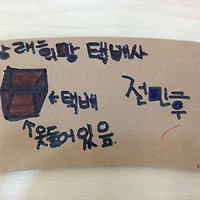 장래희망 택배사
←택배
전민흑
↑옷들어있음